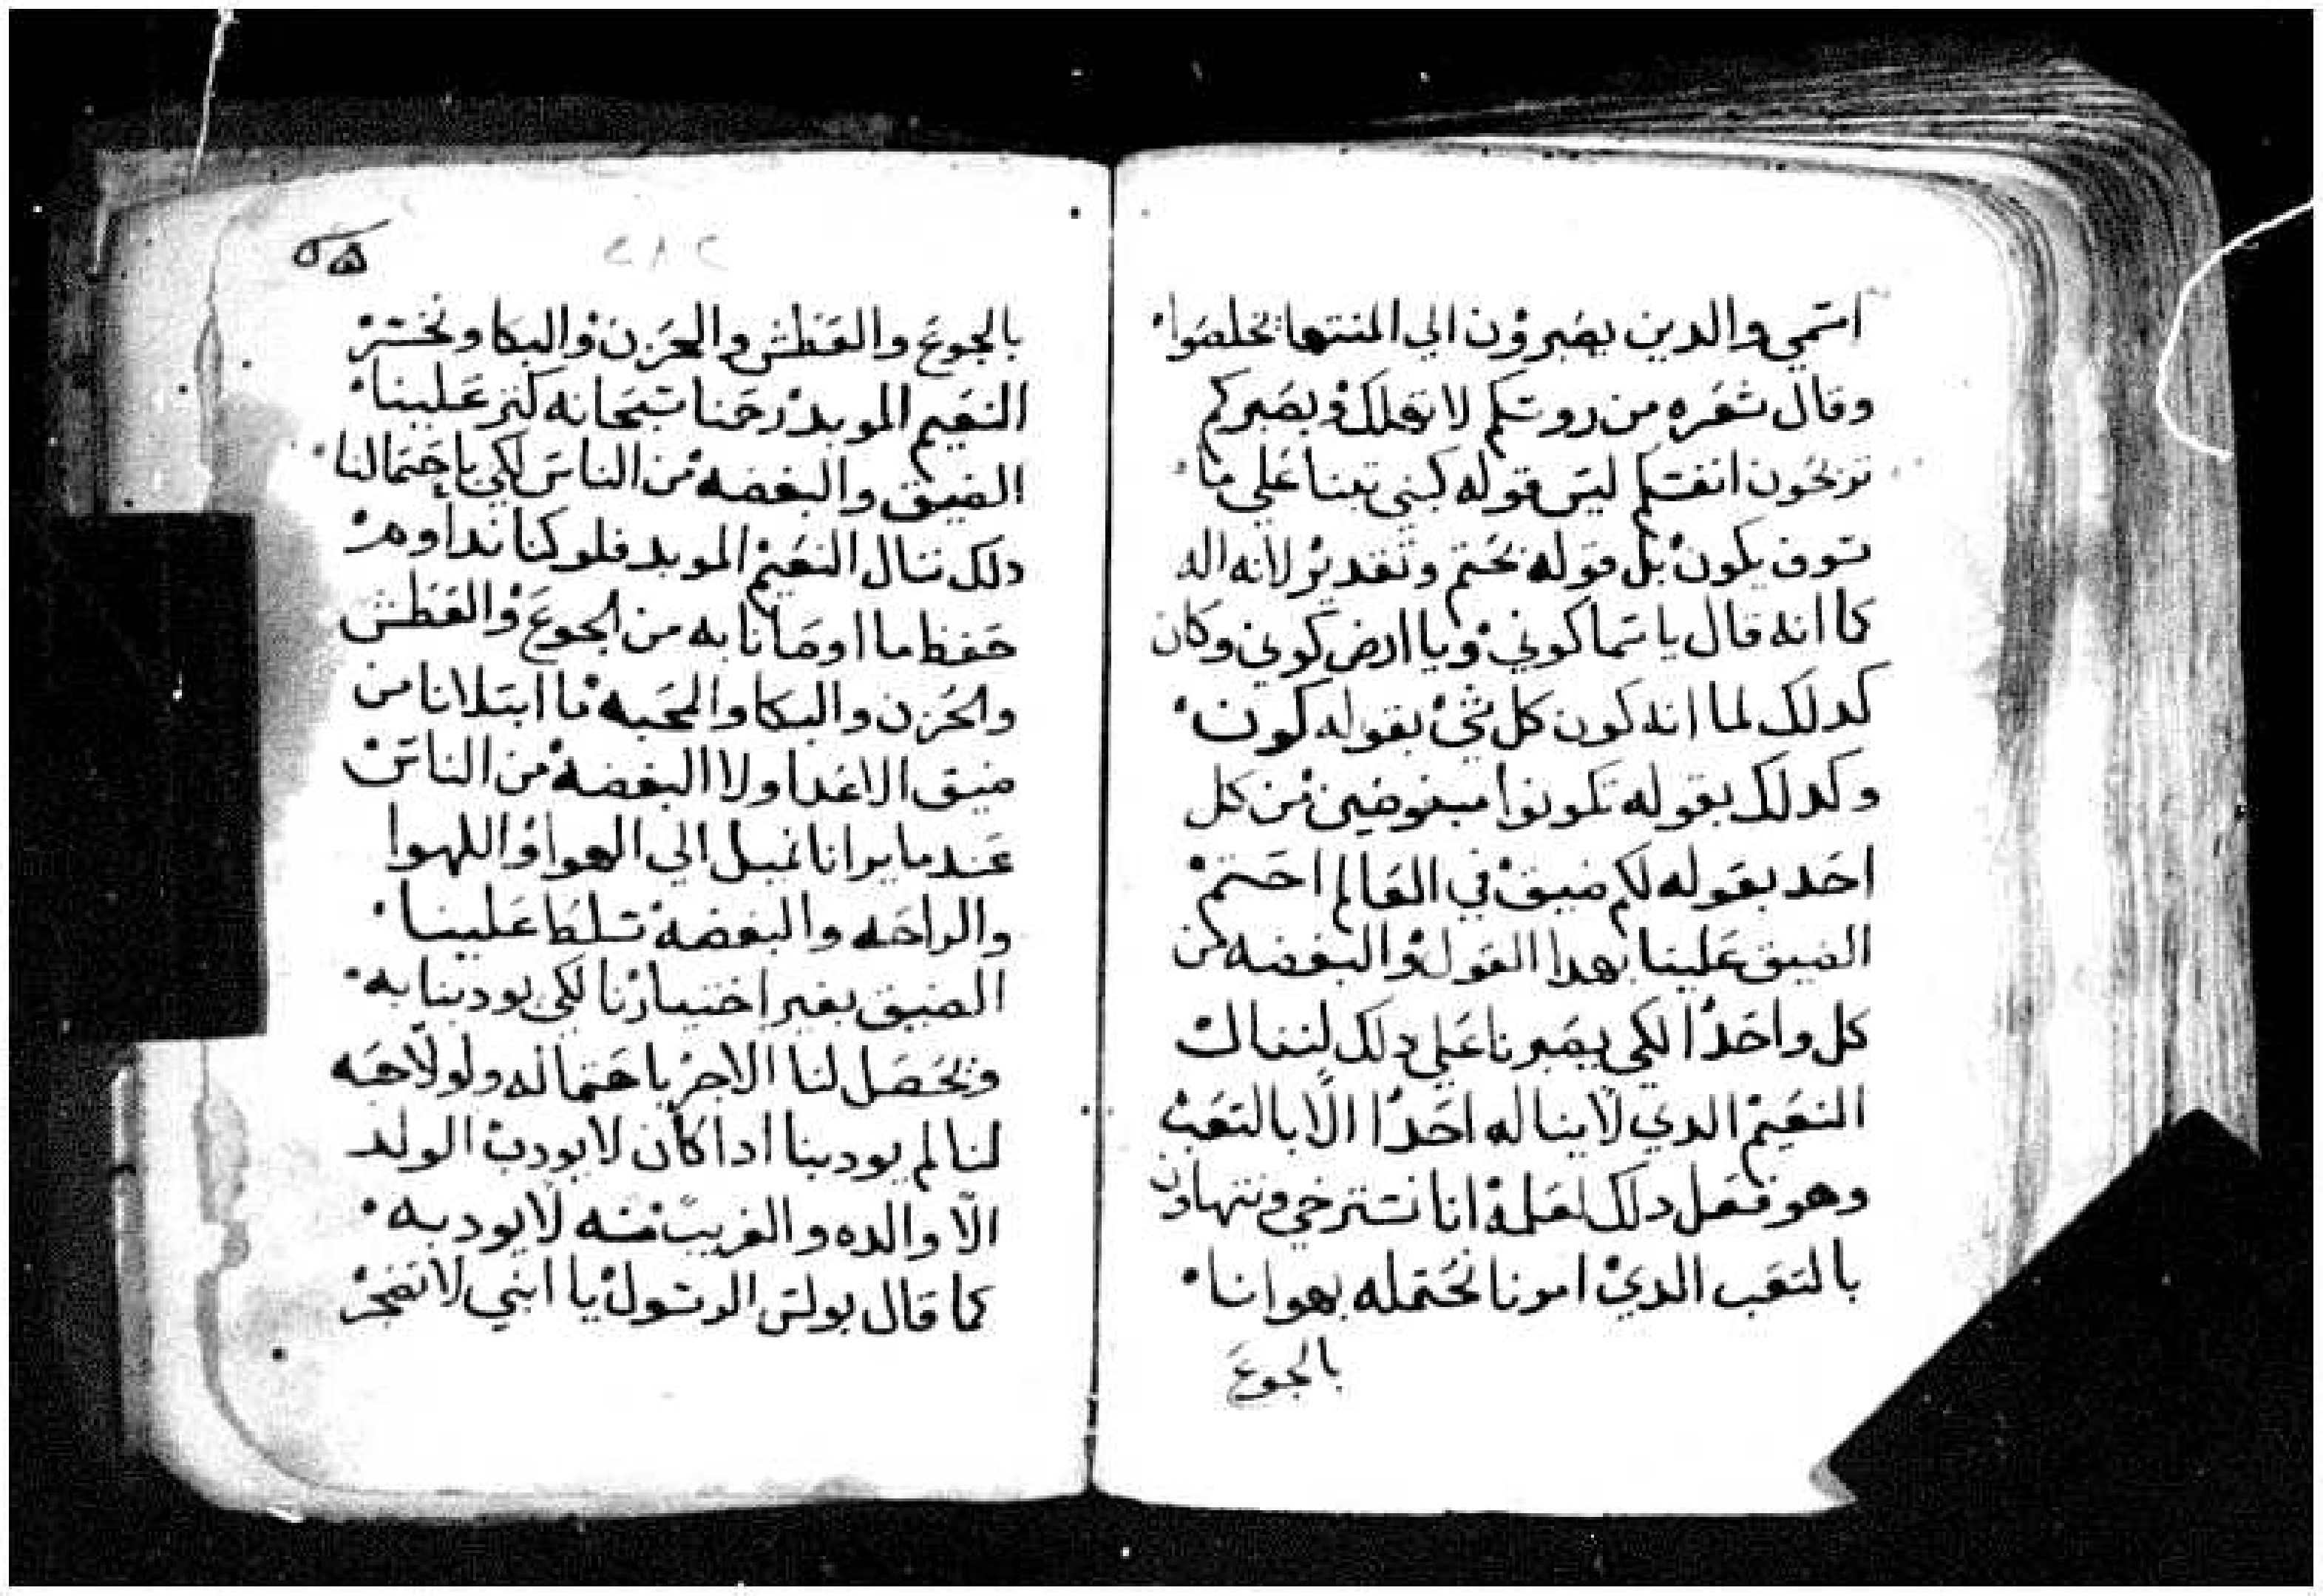 اسمي والدين يصبرون الي المنتها يخلصوا
وقال شعره من روسكم لا تهلك وبصبركم
تربحون انفسكم ليس قوله كبني تعبنا علي ما
سوف يكون بل قوله نحتم وتقدير لانه اله
كما انه قال يا سما كوني ويا ارض كوني وكان
كدلك لما انه كون كل شي بقوله كون
وكدلك بقوله تكونوا مبغوضين من كل
احد بقوله لكم ضيق في العالم احتم
الضيق علينا بهدا القول والبغضه من
كل واحدا لكي يصبرنا علي دلك لننال
النعيم الدي لا يناله احدا الا بالتعب
وهو فعل دلك لعلمه انا نسترخي ونتهاون
بالتعب الدي امرنا نحتمله بهوانا
بالجوع
٢٨٢
بالجوع والعطش والحزن والبكا ونخسر
النعيم الموبد رحمنا سبحانه كتر علينا
الضيق والبغضه من الناس لكي باحتمالنا
دلك ننال النعيم الموبد فلو كنا نداوم
حفظ ما اوصانا به من الجوع والعطش
والحزن والبكا والمحبه ما ابتلانا من
ضيق الاعدا ولا البغضه من الناس
عند ما يرانا نميل الي الهوا واللهوا
والراحه والبغضه سلط علينا
الضيق بغير اختيارنا لكي يودبنا به
ويحصل لنا الاجر باحتماله ولولا حبه
لنا لم يودبنا ادا كان لا يودب الولد
الا والده والغريب منه لا يودبه
كما قال بولس الرسول يا ابني لا تضجر